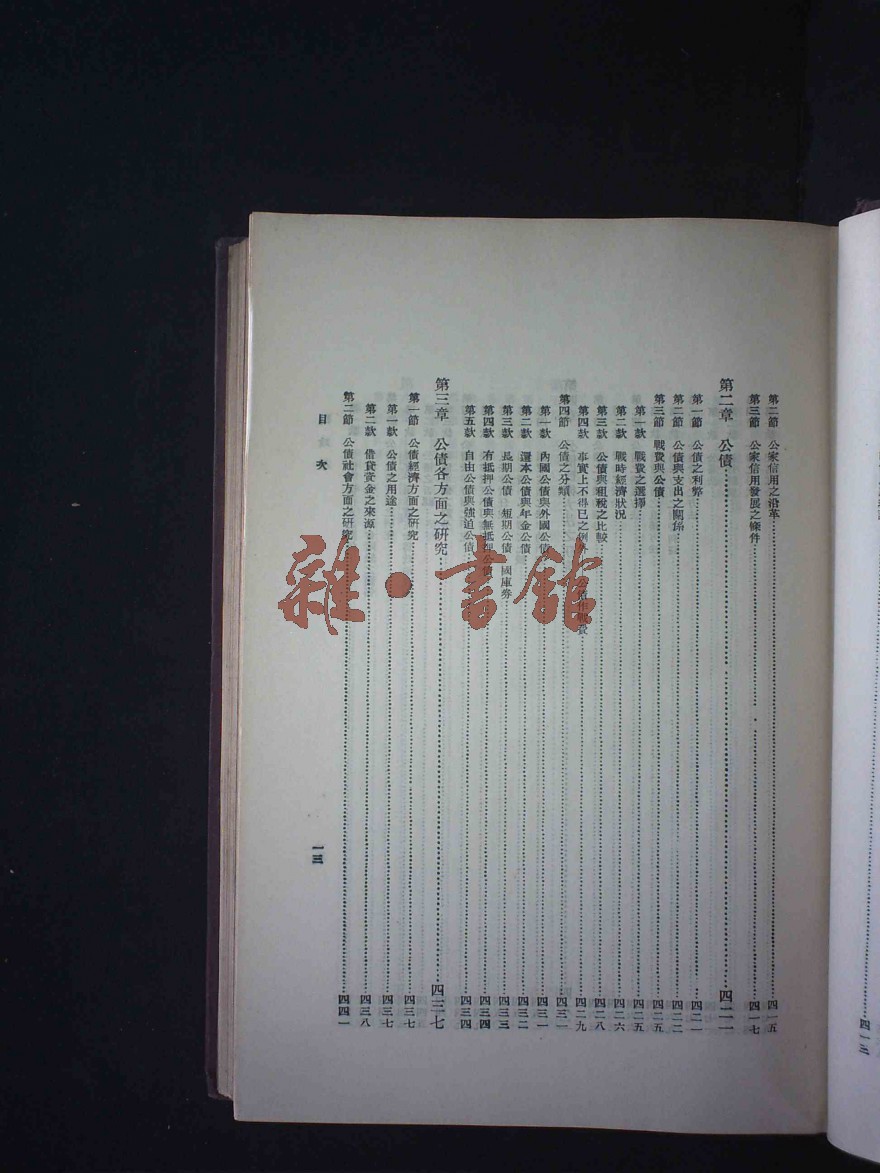 第二節　公家信用之沿革……四一五
第三節　公家信用發展之條件……四一七
第二章　公債……四二一
第一節　公債之利弊……四二一
第二節　公債與支出之關係……四二二
第三節　戰費與公債……四二五
第一款　戰費之選擇……四二五
第二款　戰時經濟狀況……四二六
第三款　公債與租稅之比較……四二八
第四款　事實上不得已之例外　公債作戰費……四二九
第四節　公債之分類……四三一
第一款　內國公債與外國公債……四三一
第二款　還本公債與年金公債……四三二
第三款　長期公債　短期公債　國庫券……四三三
第四款　有抵押公債與無抵押公債……四三四
第五款　自由公債與強迫公債……四三四
第三章　公債各方面之研究……四三七
第一節　公債經濟方面之研究……四三七
第一款　公債之用途……四三七
第二款　借貸資金之來源……四三八
第二節　公債社會方面之研究……四四一
目次
一三
雜·書館
四一三